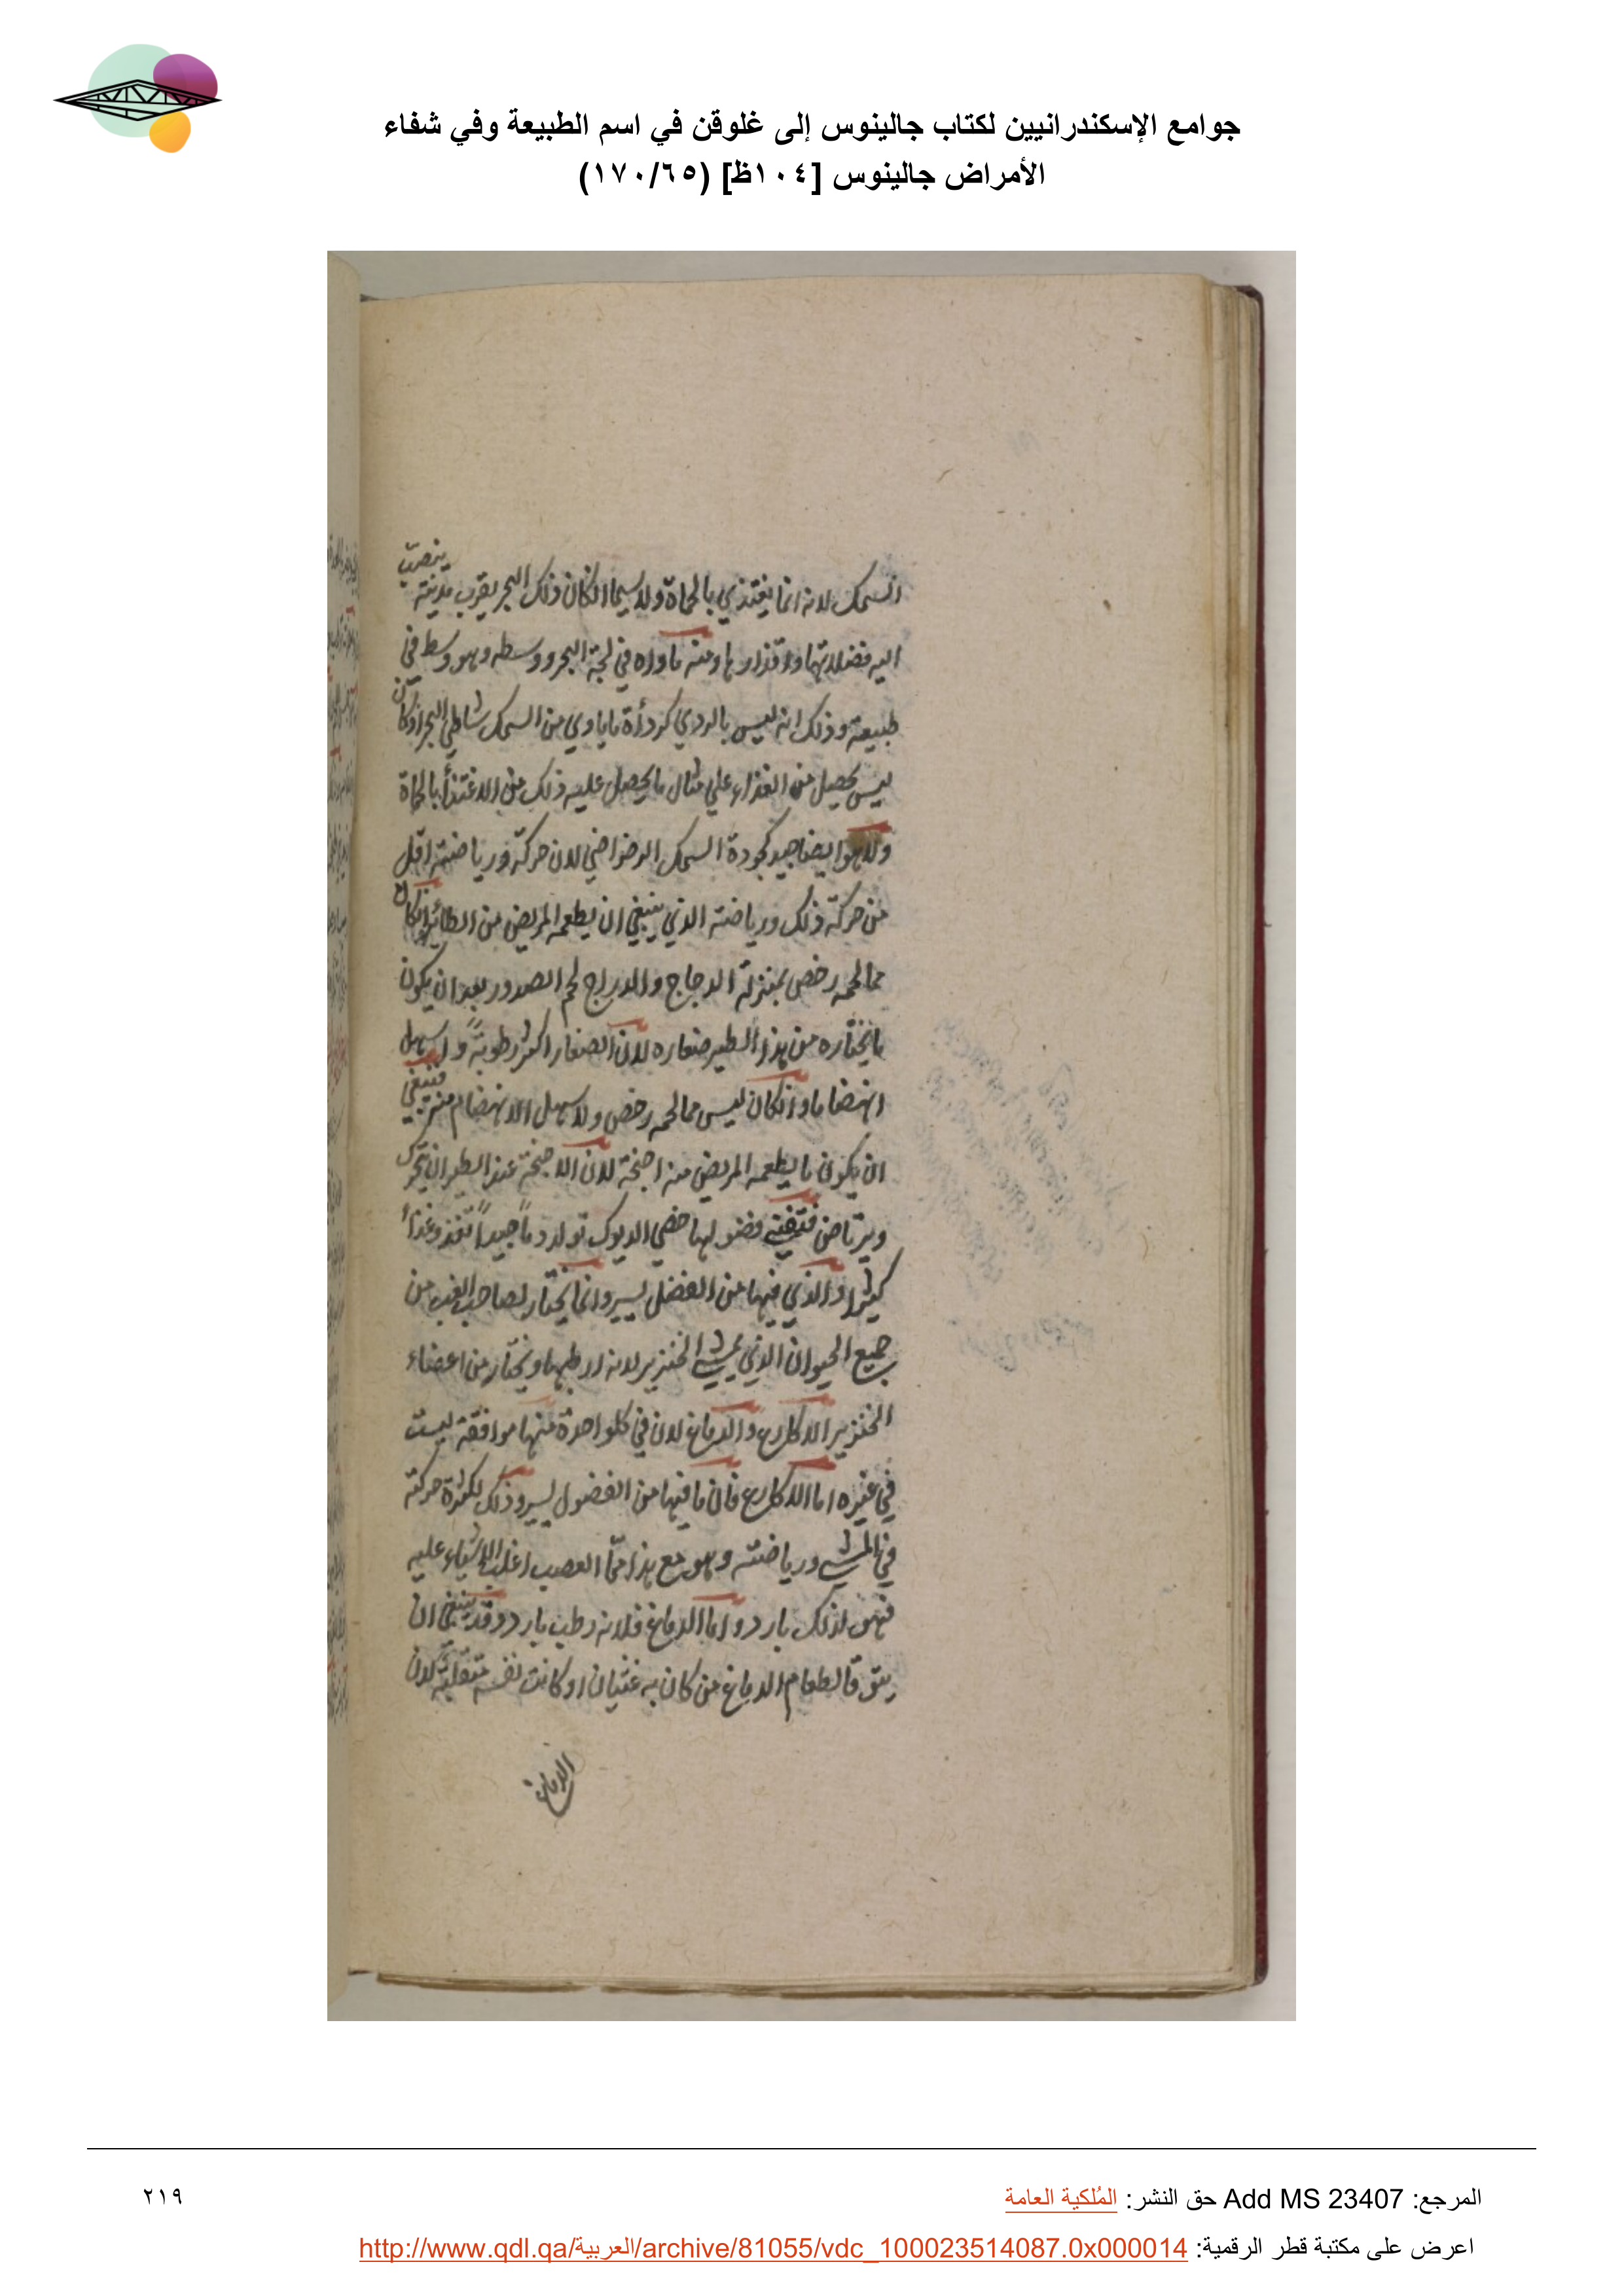 جوامع الإسكندرانيين لكتاب جالينوس إلى غلوقن في اسم الطبيعة وفي شفاء
الأمراض جالينوس [١٠٤ظ] (١٧٠/٦٥)
السمك لانه انما يغتذي بالحماة ولا سيما ان كان ذلك البحر بقرب مدينة ينصب
اليه فضلاتها واقذارها ومنه ماواه في لجة البحر ووسطه وهو وسط في
طبيعته وذلك انه ليس بالردي كردأة ما ياوي من السمك شاطئ البحر اذ كان
ليس يحصل من الغذاء علي مثال ما يحصل عليه ذلك من الاغتذأ بالحماة
ولا هو ايضا جيد كجودة السمك الرضراضي لان حركته ورياضته اقل
من حركة ذلك ورياضته الذي ينبغي ان يطعمه المريض من الطائر ان كان
مما لحمه رخص بمنزلة الدجاج والدراج لحم الصدور بعد ان يكون
ما يختاره من هذا الطير صغاره لان الصغار اكثر رطوبة واسهل
انهضاما وان كان ليس مما لحمه رخص ولا سهل الانهضام فينبغي
ان يكون ما يطعمه المريض منه اجنحة لان الاجنحة عند الطيران تتحرك
ويرتاض فتفنيه فضولها خصي الديوك تولد دماً جيداً تغذو غذأ
كثيرا والذي فيها من الفضل يسير وانما يختار لصاحب الغب من
جميع الحيوان الذي يمشي الخنزير لانه ارطبها ويختار من اعضاء
الخنزير الاكارع والدماغ لان في كل واحدة منها موافقة ليست
في غيره اما الاكارع فان ما فيها من الفضول يسير وذلك لكثرة حركته
في المشي ورياضته وهو مع هذا مما العصب اغلب الاشياء عليه
فهو لذلك بارد واما الدماغ فلانه رطب بارد وقد ينبغي ان
يتوقا لطعام الدماغ من كان به غثيان او كانت نفسه متقلبة لان
الدماغ
المرجع: Add MS 23407 حق النشر: المُلكية العامة
٢١٩
اعرض على مكتبة قطر الرقمية: http://www.qdl.qa/العربية/archive/81055/vdc_100023514087.0x000014